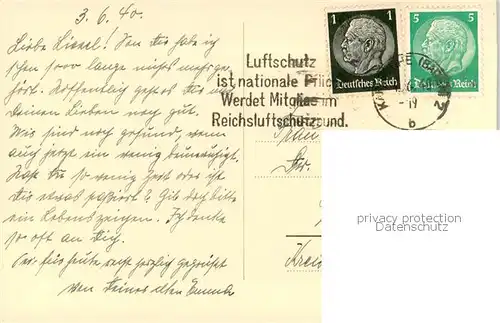 3.6.40.
Liebe Liesel! Von Dir habe ich
schon so lange nichts mehr ge-
hört. Hoffentlich geht es Dir und
Deinen Lieben noch gut.
Wir sind noch gesund, wenn
auch jetzt ein wenig beunruhigt.
Hast Du so wenig Zeit oder ist
Dir etwas passiert? Gib doch bitte
ein Lebenszeichen. Ich denke
so oft an Dich.
Nur für heute recht herzlich gegrüßt
von Deiner alten
Luftschutz
ist nationale Pflicht
Werdet Mitglied im
Reichsluftschutzbund.
1 1
Deutsches Reich
5 5
Deutsches Reich
-19
b
2
Frau
Dr.
Kreis
privacy protection
Datenschutz